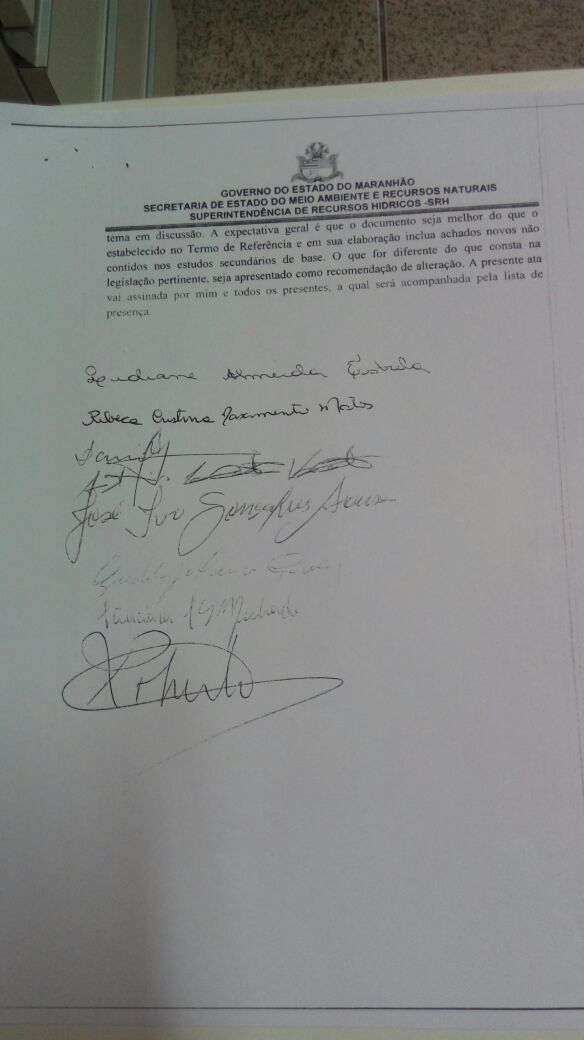 GOVERNO DO ESTADO DO MARANHÃO
SECRETARIA DE ESTADO DO MEIO AMBIENTE E RECURSOS NATURAIS
SUPERINTENDÊNCIA DE RECURSOS HIDRICOS -SRH
tema em discussão. A expectativa geral é que o documento seja melhor do que o
estabelecido no Termo de Referência e em sua elaboração inclua achados novos não
contidos nos estudos secundários de base. O que for diferente do que consta na
legislação pertinente, seja apresentado como recomendação de alteração. A presente ata
vai assinada por mim e todos os presentes, a qual será acompanhada pela lista de
presença.
Almeida
Cristina Nascimento
José Gonçalves
Machado
Roberto